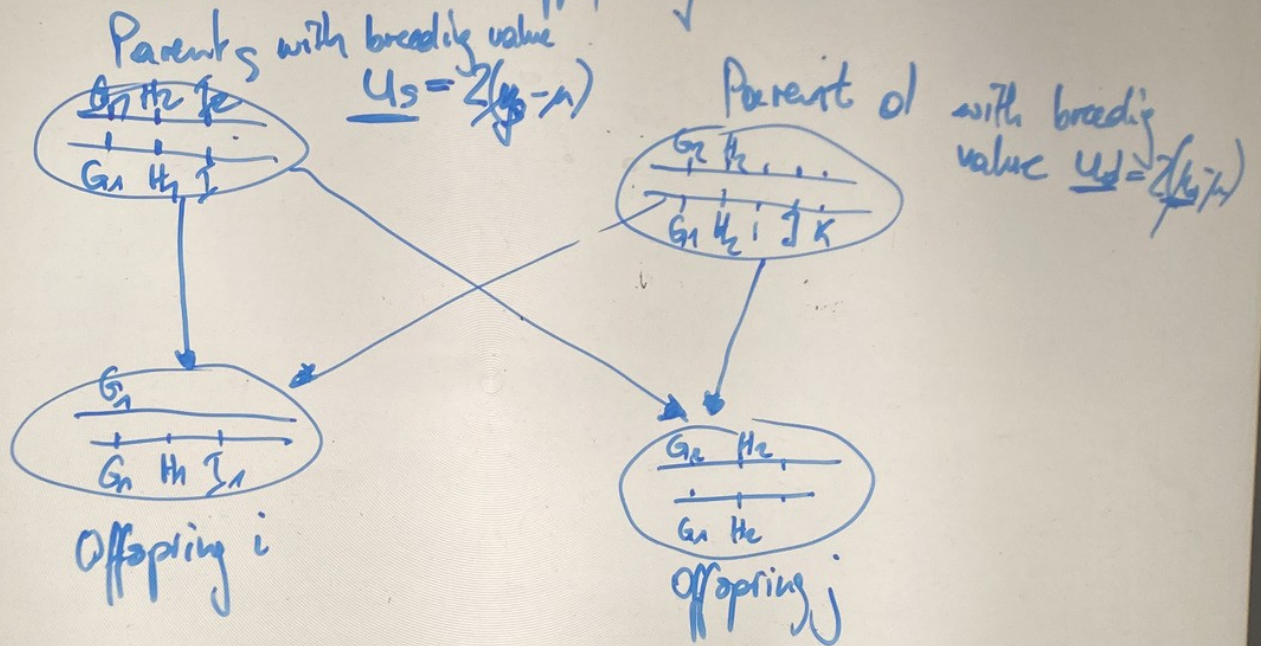 Parent s with breeding value
u_s = 2(y_s - μ)
G1 H2 I2
G1 H1 I
Parent d with breeding
value u_d = 2(
G2 H2
G1 H2 I J K
G1
G1 H1 I1
Offspring i
G2 H2
G1 H2
Offspring j